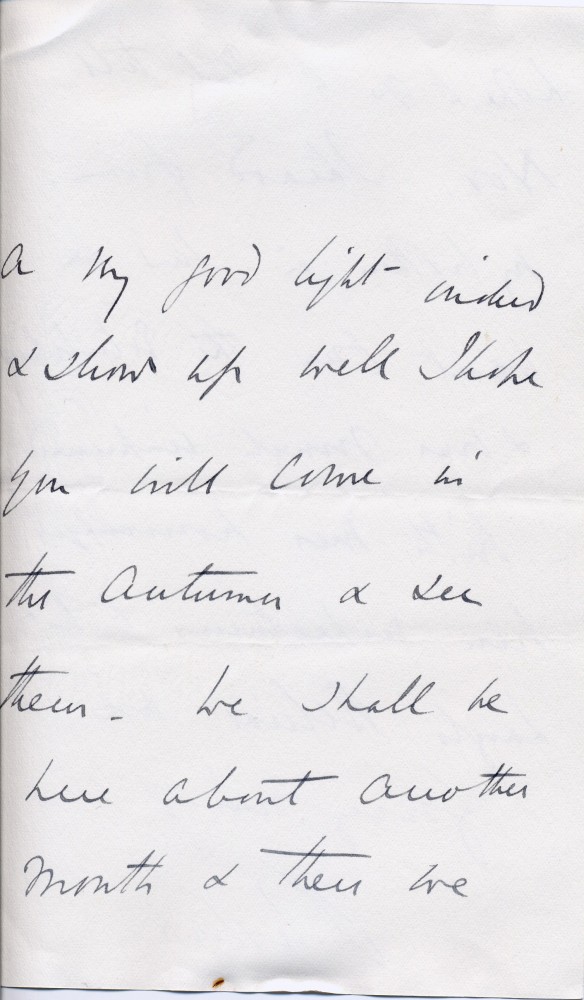 a very good light indeed
& show up well I hope
you will come in
the Autumn & see
them - We shall be
here about another
month & then we